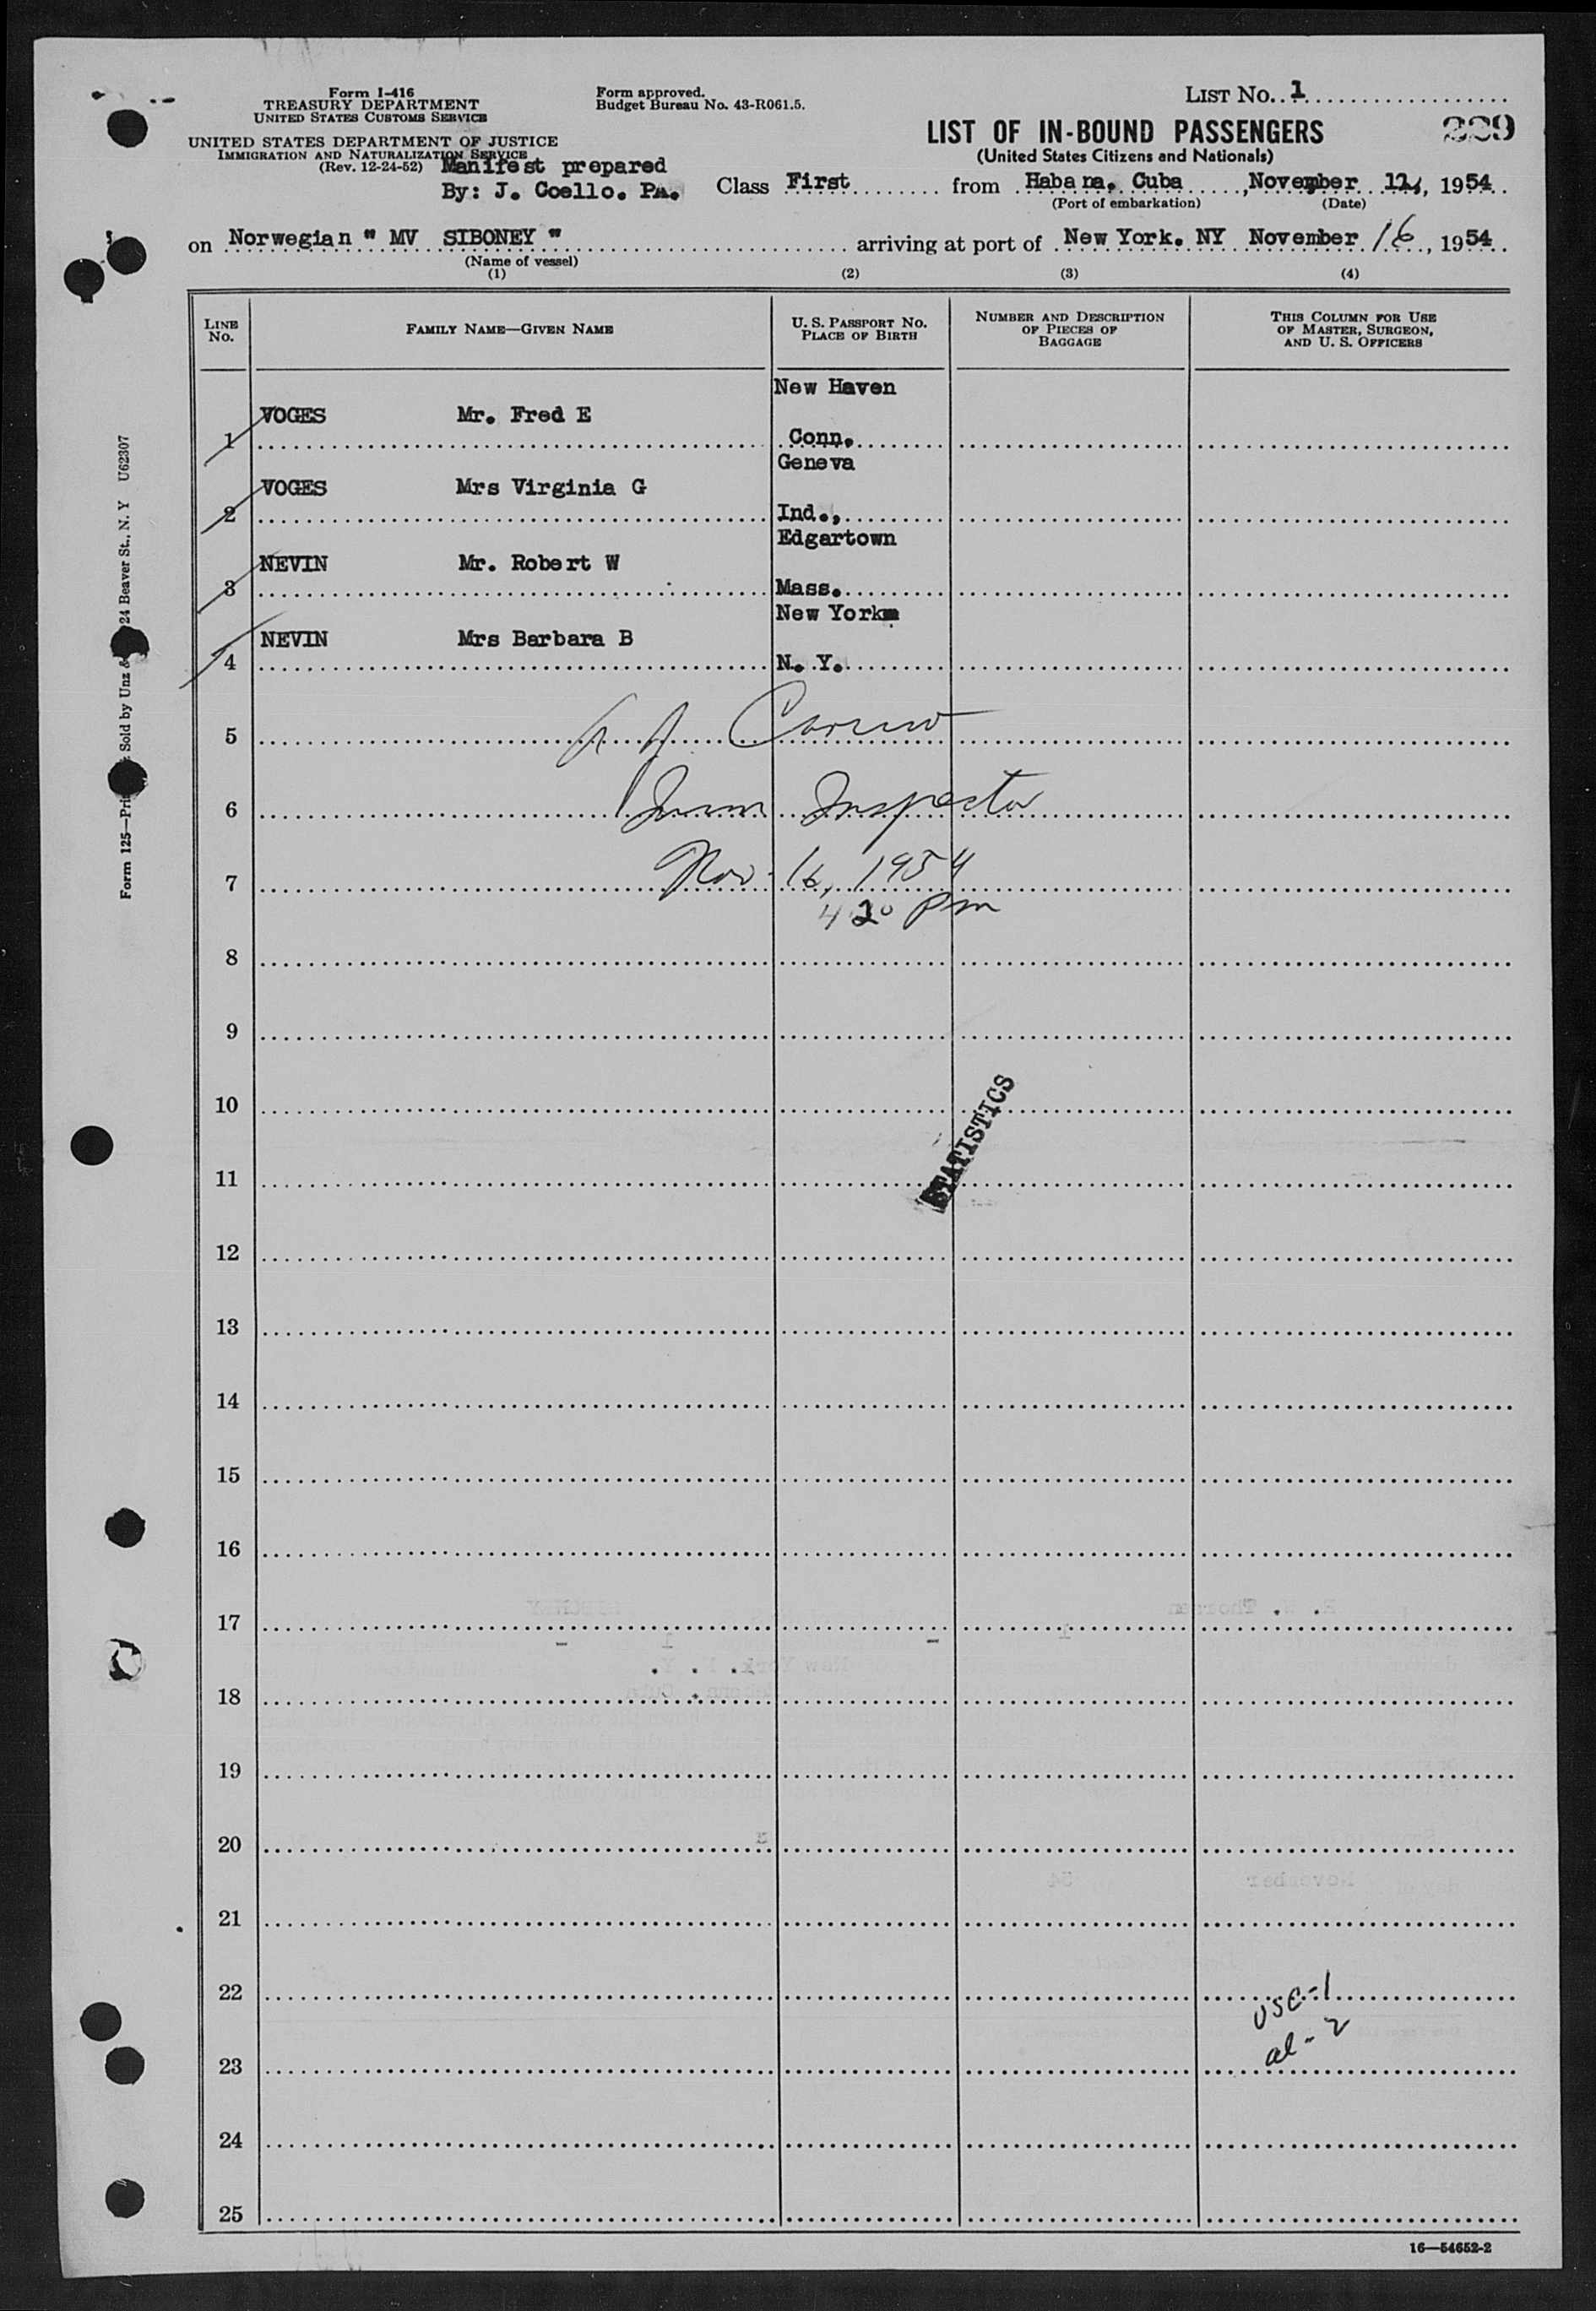 Form I-416
TREASURY DEPARTMENT
UNITED STATES CUSTOMS SERVICE
UNITED STATES DEPARTMENT OF JUSTICE
IMMIGRATION AND NATURALIZATION SERVICE
(Rev. 12-24-52)
Manifest prepared
By: J. Coello. PA.
Form approved.
Budget Bureau No. 43-R061.5.
LIST No. 1
LIST OF IN-BOUND PASSENGERS
229
(United States Citizens and Nationals)
Class First from Habana, Cuba, November 12, 1954
(Port of embarkation) (Date)
on Norwegian " MV SIBONEY " arriving at port of New York. NY November 16, 1954
(Name of vessel)
(1) (2) (3) (4)
LINE No. FAMILY NAME—GIVEN NAME U. S. PASSPORT NO. PLACE OF BIRTH NUMBER AND DESCRIPTION OF PIECES OF BAGGAGE THIS COLUMN FOR USE OF MASTER, SURGEON, AND U. S. OFFICERS
New Haven
1 VOGES Mr. Fred E
Conn.
Geneva
2 VOGES Mrs Virginia G
Ind.,
Edgartown
3 NEVIN Mr. Robert W
Mass.
New York
4 NEVIN Mrs Barbara B
N. Y.
5
6 Imm Inspector
7 Nov 16, 1954
4 20 Pm
8
9
10
STATISTICS
11
12
13
14
15
16
17
18
19
20
21
22 USC-1
23 al-2
24
25
16—54652-2
Form 125—Sold by Unz & 24 Beaver St., N. Y U62307